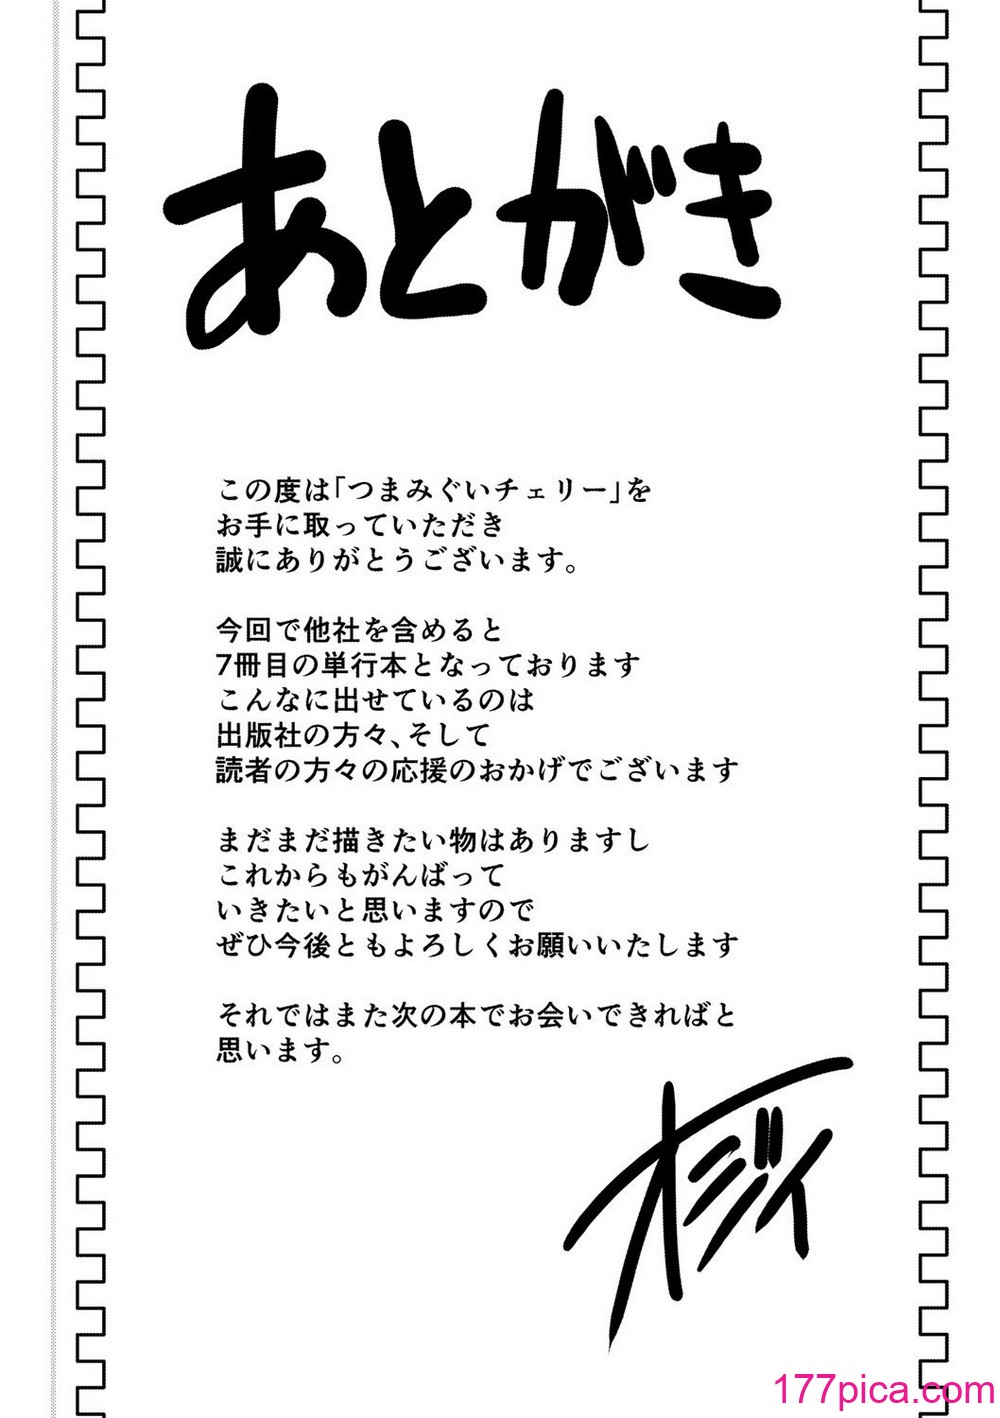 あとがき
この度は「つまみぐいチェリー」を
お手に取っていただき
誠にありがとうございます。
今回で他社を含めると
7冊目の単行本となっております
こんなに出せているのは
出版社の方々、そして
読者の方々の応援のおかげでございます
まだまだ描きたい物はありますし
これからもがんばって
いきたいと思いますので
ぜひ今後ともよろしくお願いいたします
それではまた次の本でお会いできればと
思います。
オジイ
177pica.com